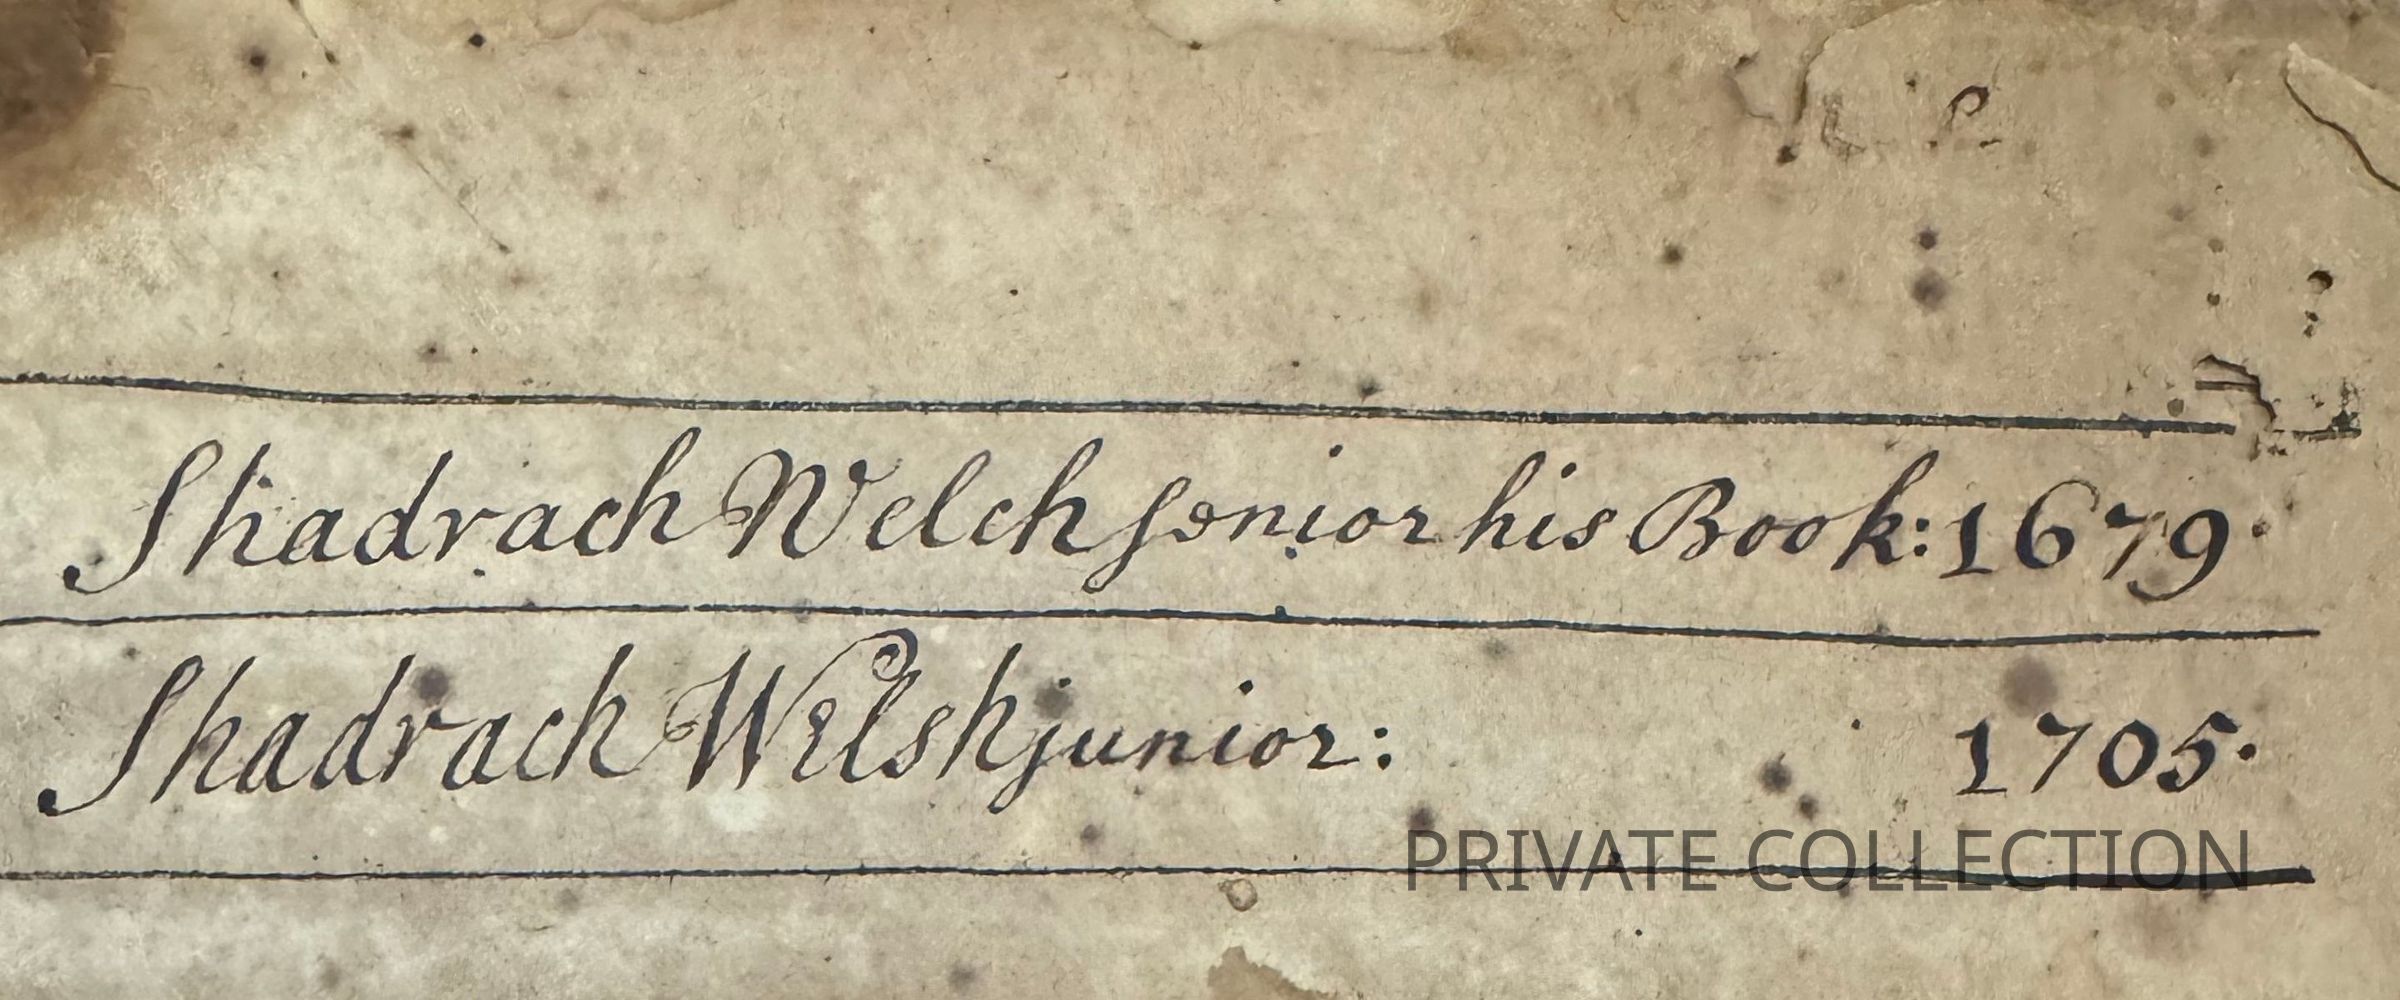 Shadrach Welch senior his Book: 1679.
Shadrach Welsh junior: 1705.
PRIVATE COLLECTION